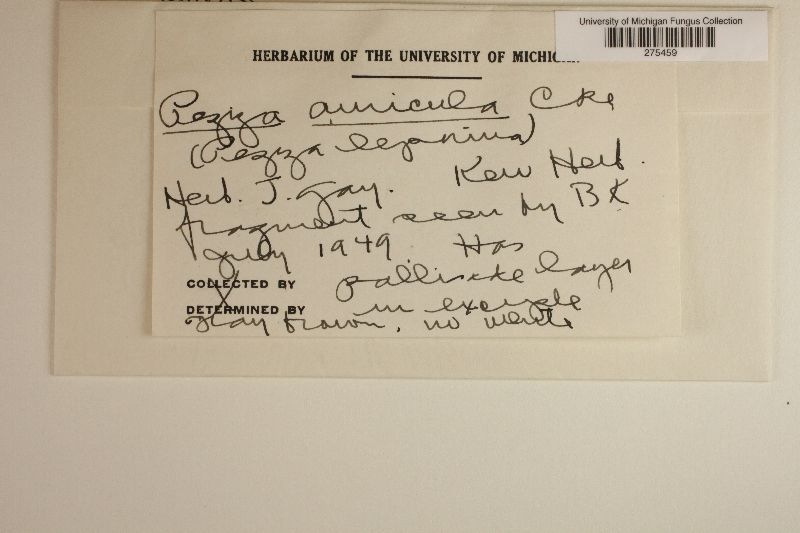 University of Michigan Fungus Collection
275459
HERBARIUM OF THE UNIVERSITY OF MICHIGAN
Peziza auricula Cke
(Peziza leporina)
Herb. J. Gay. Kew Herb.
fragment seen by BK
July 1949 Has
COLLECTED BY pallisade layer
DETERMINED BY in exciple
brown, no